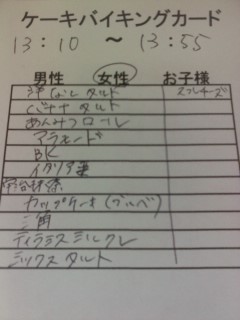 ケーキバイキングカード
13:10 ～ 13:55
男性 女性 お子様
洋なしタルト スフレチーズ
バナナタルト
あんみつロール
アラモード
BK
イタリア栗
カップケーキ(ブルベ)
三角
ティラミスミルクレ
ミックスタルト